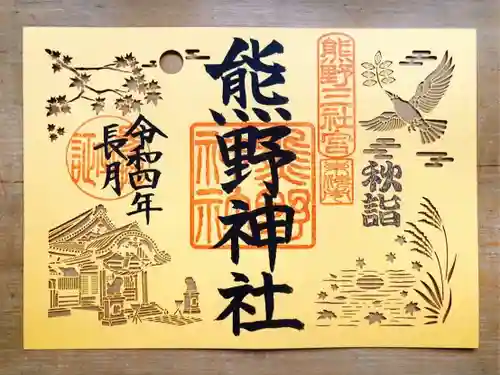 熊野三社宮
秋詣
熊野神社
令和四年
長月